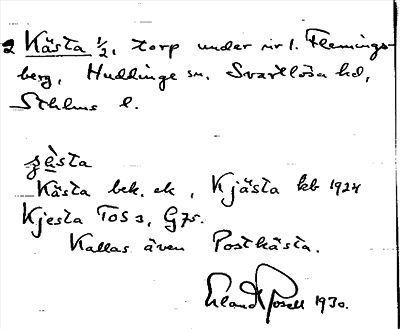 2 Kästa ½, torp under nr 1. Flemings-
berg, Huddinge sn. Svartlösa hd,
Sthlms l.
Kästa bek. ek, Kjästa kb 1924
Kjesta TOS 3, G75.
Kallas även Postkästa.
Erland Rosell 1930.